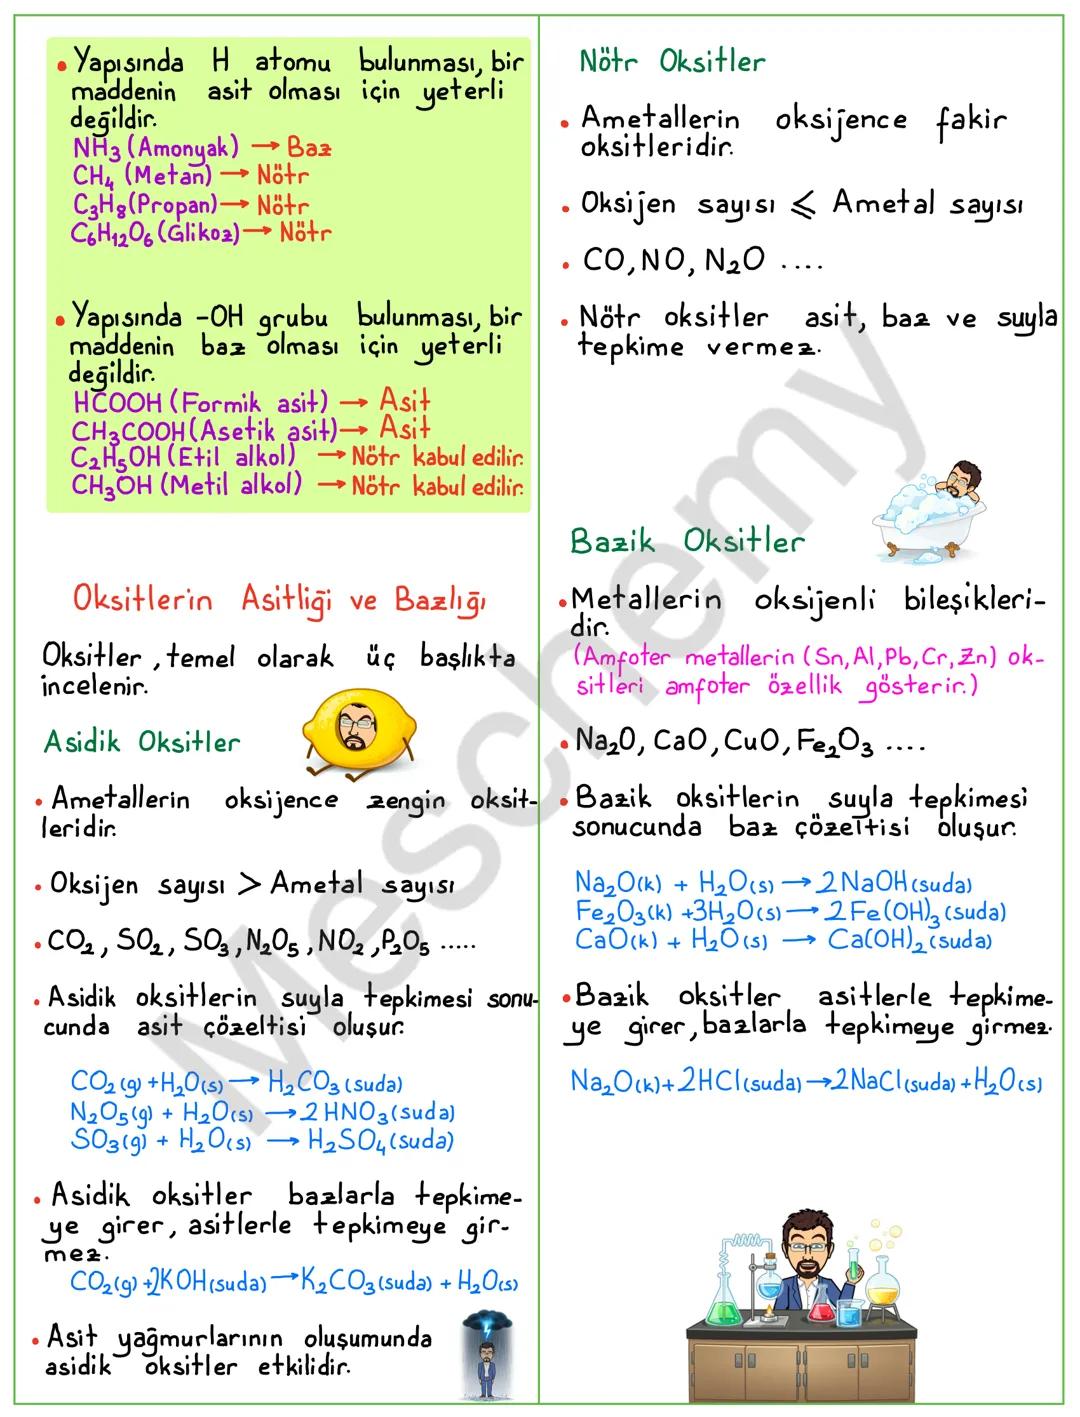 • Yapısında H atomu bulunması, bir
maddenin asit olması için yeterli
değildir.
NH₃ (Amonyak) → Baz
CH₄ (Metan) → Nötr
C₃H₈(Propan) → Nötr
C₆H₁₂O₆ (Glikoz) → Nötr
• Yapısında -OH grubu bulunması, bir
maddenin baz olması için yeterli
değildir.
HCOOH (Formik asit) → Asit
CH₃COOH (Asetik asit) → Asit
C₂H₅OH (Etil alkol) → Nötr kabul edilir.
CH₃OH (Metil alkol) → Nötr kabul edilir.
Oksitlerin Asitliği ve Bazlığı
Oksitler, temel olarak üç başlıkta
incelenir.
Asidik Oksitler
• Ametallerin oksijence zengin oksit-
leridir.
• Oksijen sayısı > Ametal sayısı
• CO₂, SO₂, SO₃, N₂O₅, NO₂, P₂O₅ .....
• Asidik oksitlerin suyla tepkimesi sonu-
cunda asit çözeltisi oluşur.
CO₂(g) + H₂O(s) → H₂CO₃(suda)
N₂O₅(g) + H₂O(s) → 2HNO₃(suda)
SO₃(g) + H₂O(s) → H₂SO₄(suda)
• Asidik oksitler bazlarla tepkime-
ye girer, asitlerle tepkimeye gir-
mez.
CO₂(g) + 2KOH(suda) → K₂CO₃(suda) + H₂O(s)
• Asit yağmurlarının oluşumunda
asidik oksitler etkilidir.
Nötr Oksitler
• Ametallerin oksijence fakir
oksitleridir.
• Oksijen sayısı ⩽ Ametal sayısı
• CO, NO, N₂O ....
• Nötr oksitler asit, baz ve suyla
tepkime vermez.
Bazik Oksitler
• Metallerin oksijenli bileşikleri-
dir.
(Amfoter metallerin (Sn, Al, Pb, Cr, Zn) ok-
sitleri amfoter özellik gösterir.)
• Na₂O, CaO, CuO, Fe₂O₃ ....
• Bazik oksitlerin suyla tepkimesi
sonucunda baz çözeltisi oluşur.
Na₂O(k) + H₂O(s) → 2NaOH(suda)
Fe₂O₃(k) + 3H₂O(s) → 2Fe(OH)₃(suda)
CaO(k) + H₂O(s) → Ca(OH)₂(suda)
• Bazik oksitler asitlerle tepkime-
ye girer, bazlarla tepkimeye girmez.
Na₂O(k) + 2HCl(suda) → 2NaCl(suda) + H₂O(s)
Meschemy